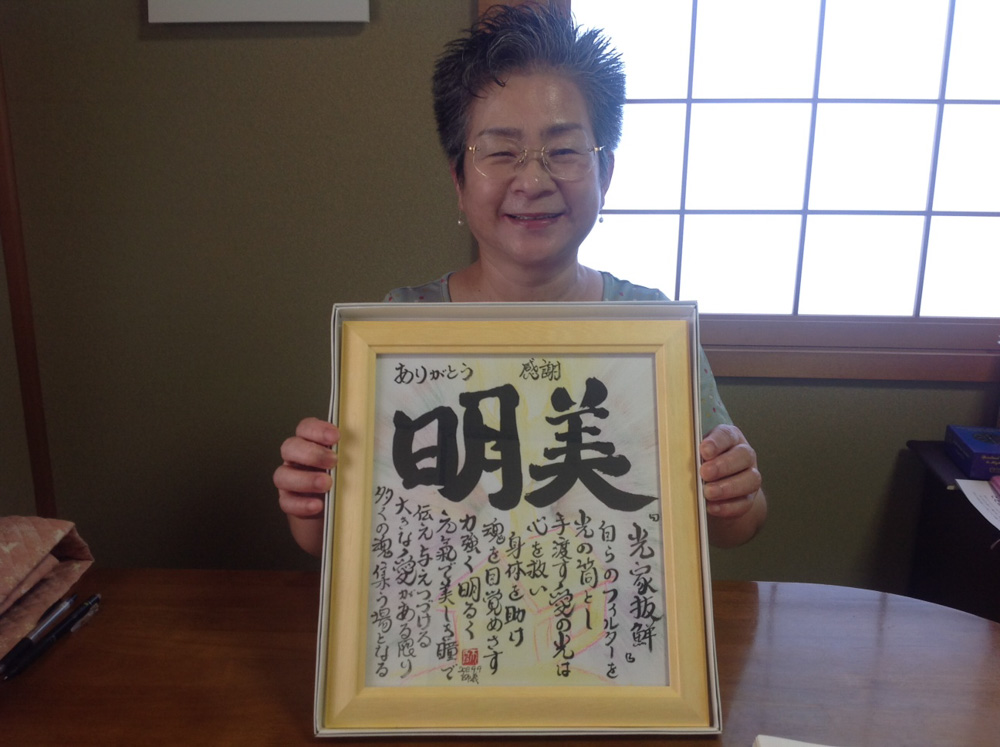 ありがとう 感謝
明美
『光家抜鮮』
自らのフィルターを
光の筒とし
手渡す愛の光は
心を救い
身体を助け
魂を目覚めさす
力強く明るく
元氣で美しい瞳で
伝え与えつづける
大きな愛がある限り
多くの魂集う場となる